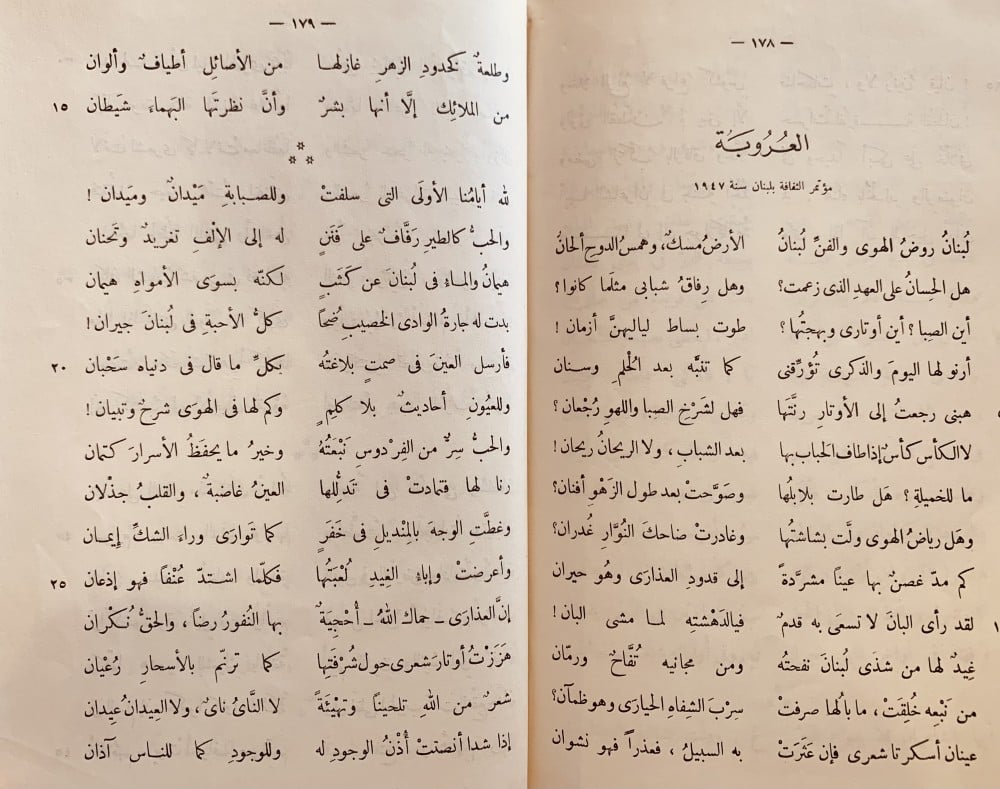 — ١٧٨ —
العُرُوبَة
مؤتمر الثقافة بلبنان سنة ١٩٤٧
لُبنانُ روضُ الهوى والفنِّ لُبنانُ الأرضُ مسكٌ، وهمسُ الدوحِ ألحانُ
هل الحِسانُ على العهدِ الذى زعمت؟ وهل رِفاقُ شبابى مثلَما كانوا؟
أين الصبا؟ أين أوتارى وبهجتُها؟ طوت بساط لياليهنَّ أزمان!
أرنو لها اليومَ والذكرى تُؤرِّقنى كما تنبَّه بعد الحُلْمِ وسنان
هبنى رجعتُ إلى الأوتارِ رنَّتَها فهل لشَرْخِ الصبا واللهوِ رُجْعان؟
لا الكأس كأسٌ إذا طاف الحَباب بها بعد الشبابِ، ولا الريحانُ ريحان!
ما للخميلةِ؟ هَل طارت بلابلُها وصَوَّحتْ بعد طول الزَهْوِ أفنان؟
وهَل رياضُ الهوى ولَّت بشاشتُها وغادرتْ ضاحكَ النُوَّارِ غُدران؟
كم مدّ غصنٌ بها عيناً مشرَّدةً إلى قدودِ العذارَى وهُو حيران
لقد رأى البانَ لا تَسعَى به قدمٌ فيالدَهْشتِهِ لما مشى البان!
غِيدٌ لها من شذَى لُبنانَ نفحتُه ومن مجانيه تُفَّاحٌ ورمّان
من نَبْعِه خُلِقَتْ، ما بالُها صرفتْ سِرْبَ الشِفاهِ الحيارَى وهو ظمآن؟
عينان أسكرتا شعرى فإن عَثَرَتْ به السبيلُ، فعذراً فهو نشوان
— ١٧٩ —
وطلعةٌ كخدودِ الزهرِ غازلها من الأصائلِ أطيافٌ وألوان
من الملائِكِ إلَّا أنها بشرٌ وأنَّ نظرتَها البَهماءَ شَيطان ١٥
لله أيامُنا الأولَى التى سلفتْ وللصبابةِ مَيْدانٌ ومَيدان!
والحبُّ كالطيرِ رَفَّافٌ على فَنَنٍ له إلى الإلْفِ تغريدٌ وتَحنان
هيمانُ والماء فى لُبنانَ عن كَثَبٍ لكنّه بسوَى الأمواهِ هيمان
بدت له جارةُ الوادى الخصيبِ ضُحًا كلُّ الأحبةِ فى لُبنانَ جيران!
فأرسل العينَ فى صمتٍ بلاغتُه بكلِّ ما قال فى دنياه سَحْبان ٢٠
وللعُيُونِ أحاديثٌ بلا كلمٍ وكم لها فى الهوَى شرحٌ وتبيان!
والحبُّ سِرٌّ من الفِرْدوسِ نَبْعَتُهُ وخيرُ ما يحفَظُ الأسرارَ كتمان
رنا لها فتمادتْ فى تَدَلُّلِها العينُ غاضبةٌ، والقلبُ جذْلان
وغطَّتِ الوجهَ بالمِنديلِ فى خَفَرٍ كما تَوارَى وراءَ الشكِّ إيمان
وأعرضتْ وإباءُ الغِيدِ لُعْبَتُها فكلّما اشتدّ عُنْفاً فهو إذعان ٢٥
إنَّ العذارَى ـ حماك اللهُ ـ أُحْجِيَةٌ بها النُفورُ رضاً، والحقُّ نُكْران
هَزَزْتُ أوتارَ شعرى حولَ شُرْفَتِها كما ترنّم بالأسحارِ رُعْيان
شعرٌ من اللهِ تلحيناً وتهيْئَةً لا النَّائُ نائٌ، ولا العِيدانُ عِيدان
إذا شدا أنصتتْ أذْنُ الوجودِ له وللوجودِ كما للناسِ آذان